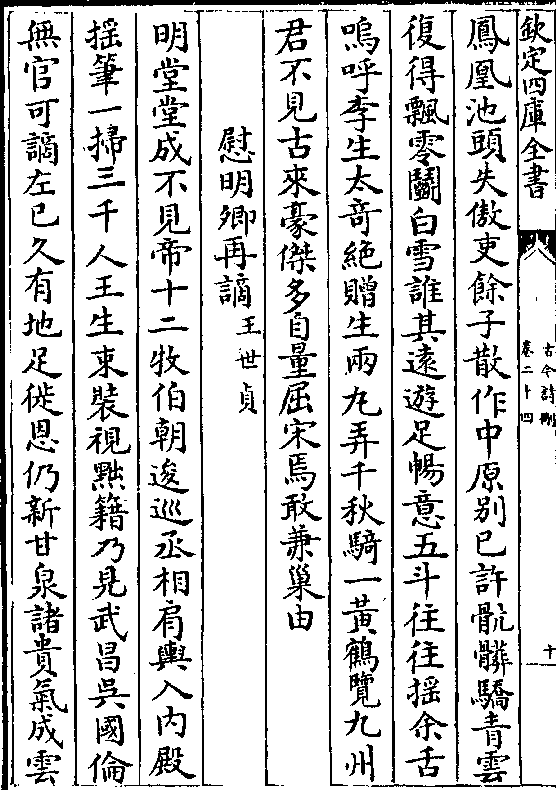 欽定四庫全書
古今詩刪
卷二十四
十
鳳凰池頭失傲吏餘子散作中原别已許骯髒驕青雲
復得飄零鬭白雪誰其遠遊足暢意五斗往往揺余舌
嗚呼李生太竒絶贈生兩丸弄千秋騎一黄鶴覽九州
君不見古來豪傑多自量屈宋焉敢兼巢由
慰明卿再謫王世貞
明堂堂成不見帝十二牧伯朝逡巡丞相肩輿入内殿
揺筆一掃三千人王生束裝視黜籍乃見武昌吳國倫
無官可謫左已久有地足徙恩仍新甘泉諸貴氣成雲